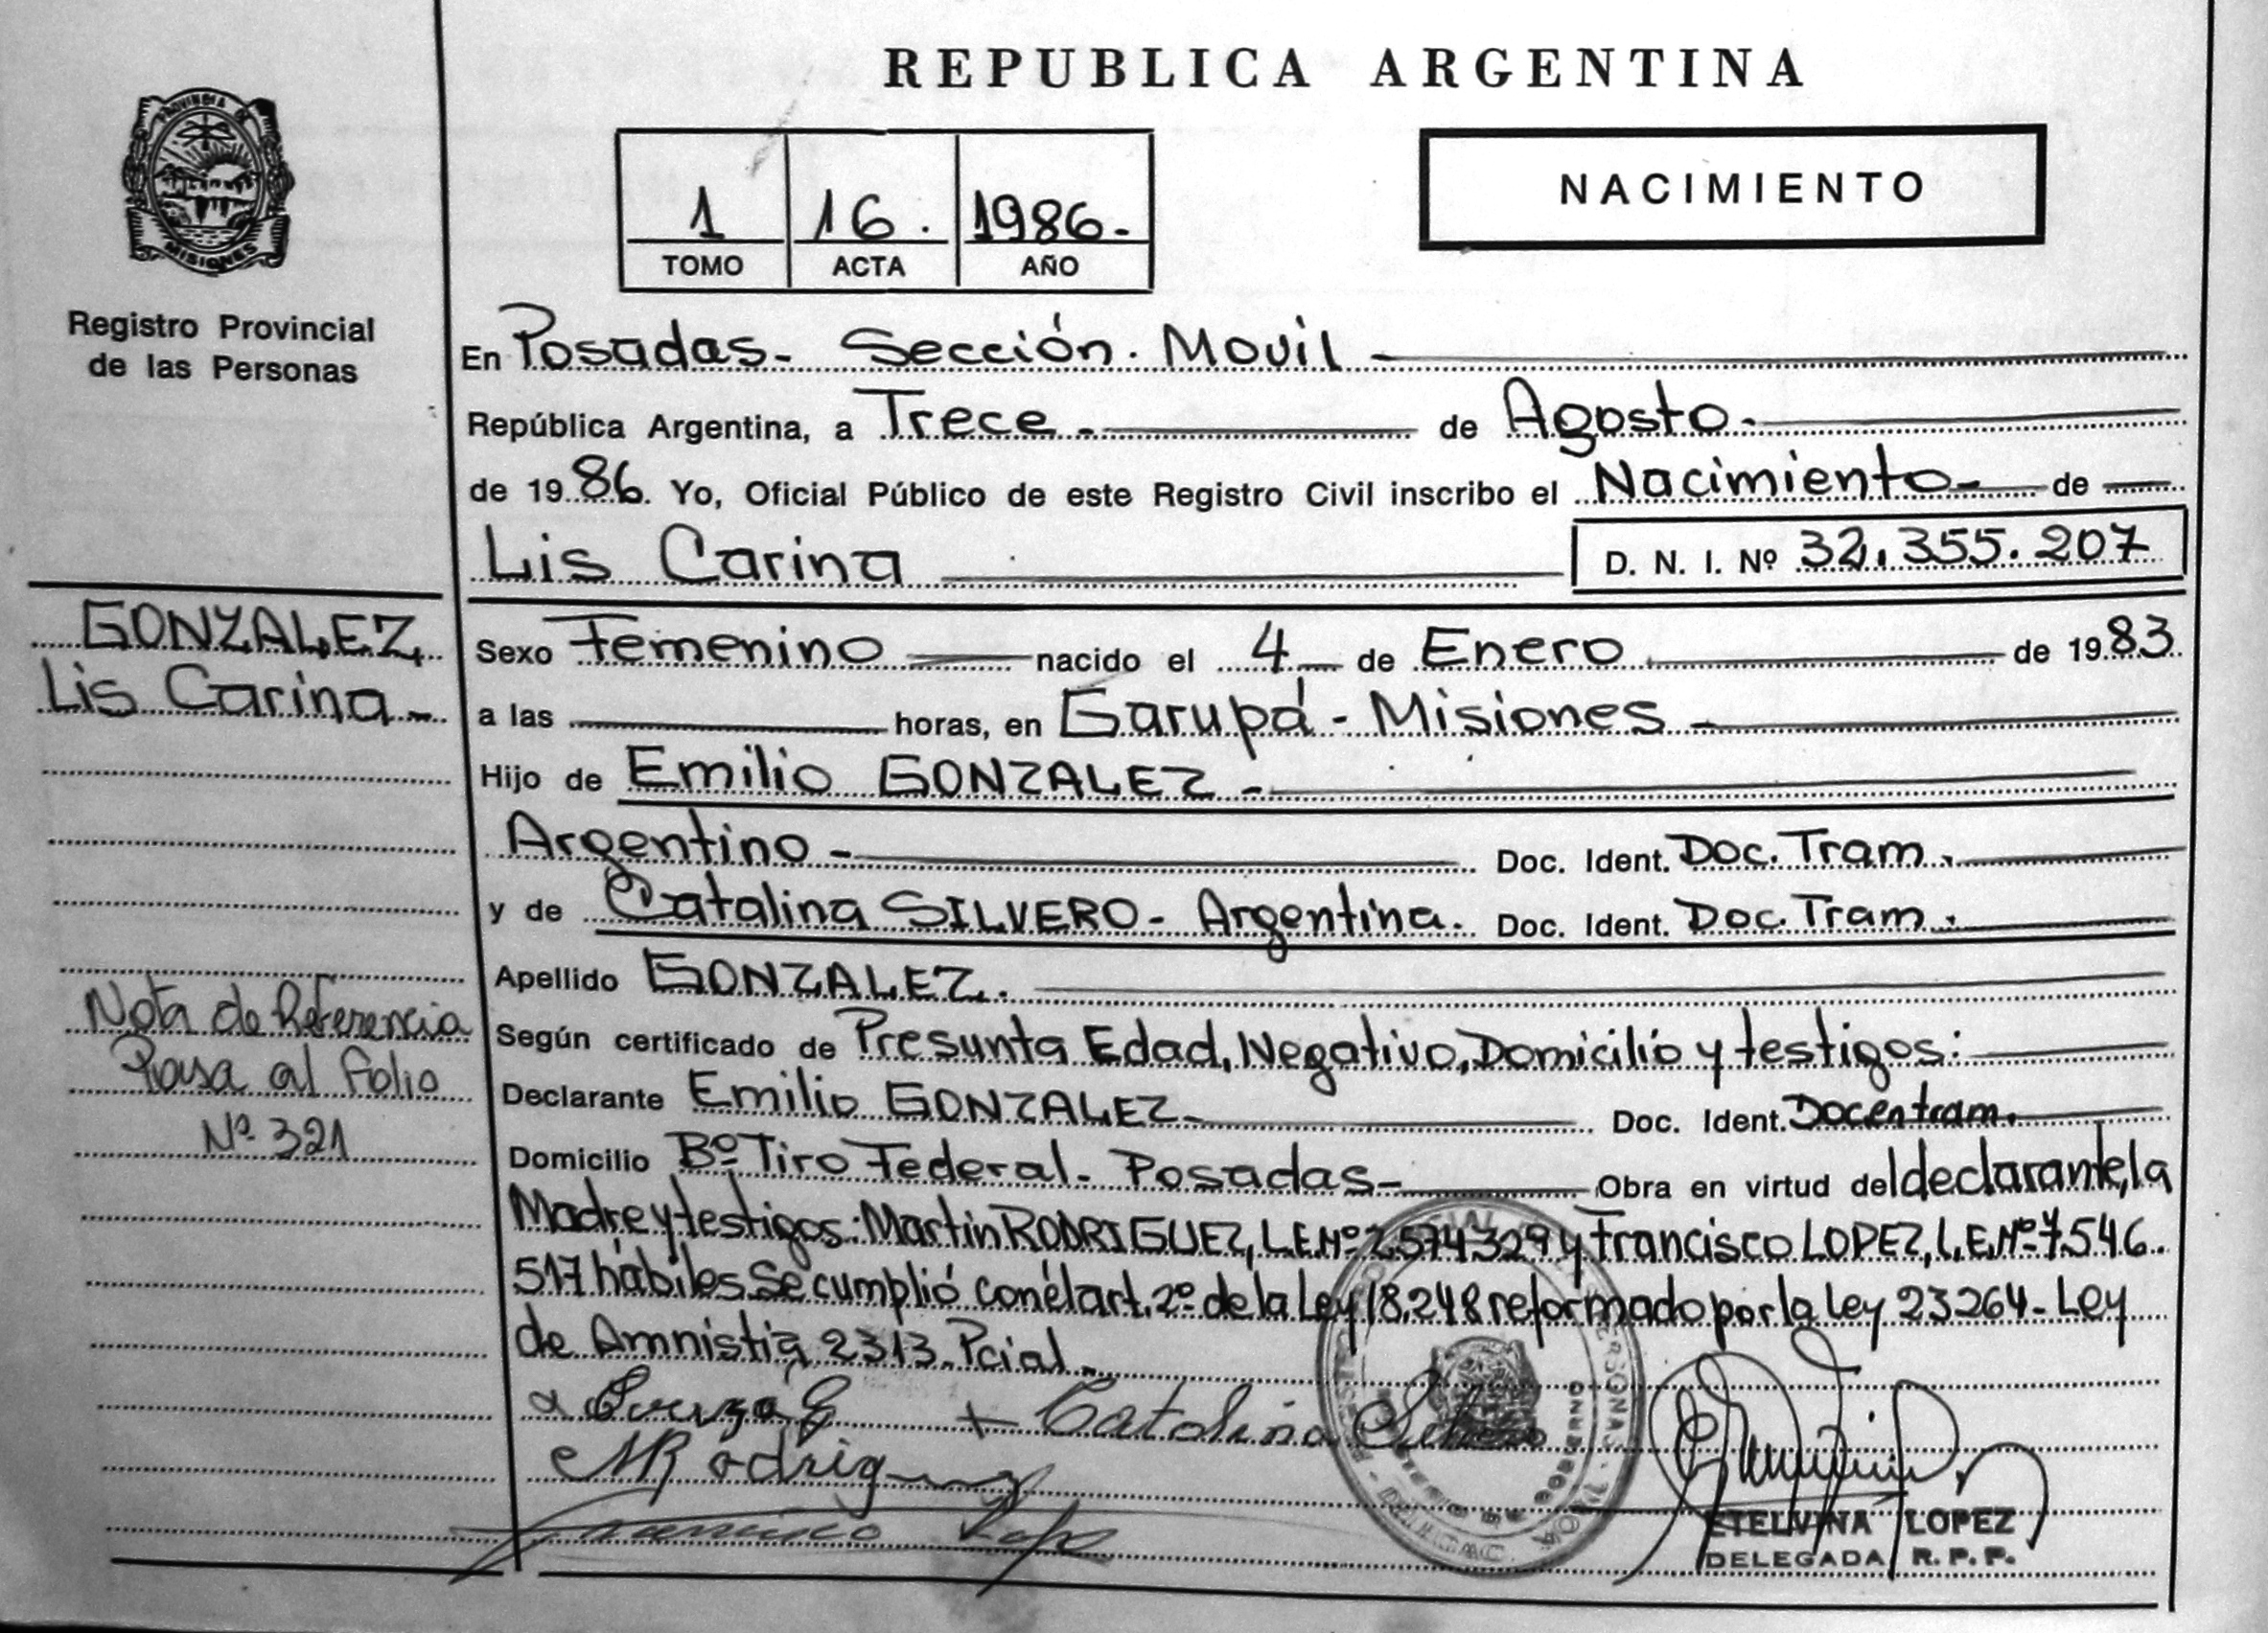 REPUBLICA ARGENTINA
PROVINCIA DE
MISIONES
Registro Provincial
de las Personas
1 16. 1986.-
TOMO ACTA AÑO
NACIMIENTO
En Posadas- Sección. Movil
República Argentina, a Trece.- de Agosto.-
de 1986. Yo, Oficial Público de este Registro Civil inscribo el Nacimiento- de
Lis Carina
D. N. I. Nº 32.355.207
GONZALEZ
Lis Carina-
Sexo Femenino nacido el 4 de Enero de 1983
a las horas, en Garupá - Misiones -
Hijo de Emilio GONZALEZ -
Argentino - Doc. Ident. Doc. Tram.
y de Catalina SILVERO- Argentina. Doc. Ident. Doc. Tram.
Apellido GONZALEZ.
Nota de Referencia
Pasa al folio
Nº 321
Según certificado de Presunta Edad, Negativo, Domicilio y testigos:
Declarante Emilio GONZALEZ- Doc. Ident. Doc en tram.
Domicilio Bº Tiro Federal- Posadas- Obra en virtud del declarante, la
Madre y testigos: Martin RODRIGUEZ, L.E.Nº 2.574329 y Francisco LOPEZ, L.E.Nº 7.546.
517 hábiles Se cumplió con él art. 2º de la Ley 18.248 reformado por la Ley 23264- Ley
de Amnistia 2313. Pcial.-
+ Catalina Silvero
M Rodriguez
Francisco Lopez
ETELVINA LOPEZ
DELEGADA R. P. P.